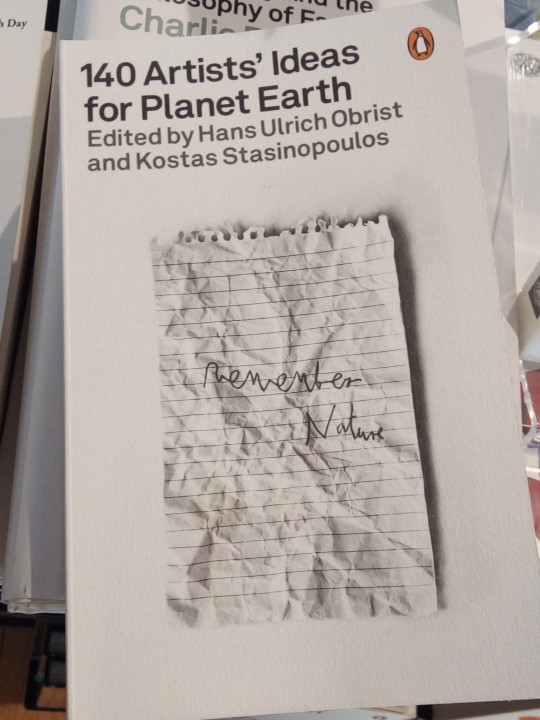 h Day
and the
osophy of
Charlie
140 Artists' Ideas
for Planet Earth
Edited by Hans Ulrich Obrist
and Kostas Stasinopoulos
Remember
Nature